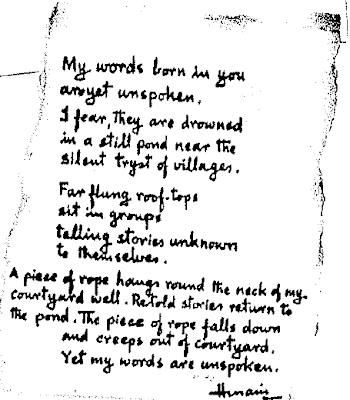 My words born in you
are yet unspoken.
I fear, they are drowned
in a still pond near the
silent tryst of villages.
Far flung roof-tops
sit in groups
telling stories unknown
to themselves.
A piece of rope hangs round the neck of my
courtyard well. Retold stories return to
the pond. The piece of rope falls down
and creeps out of courtyard.
Yet my words are unspoken.